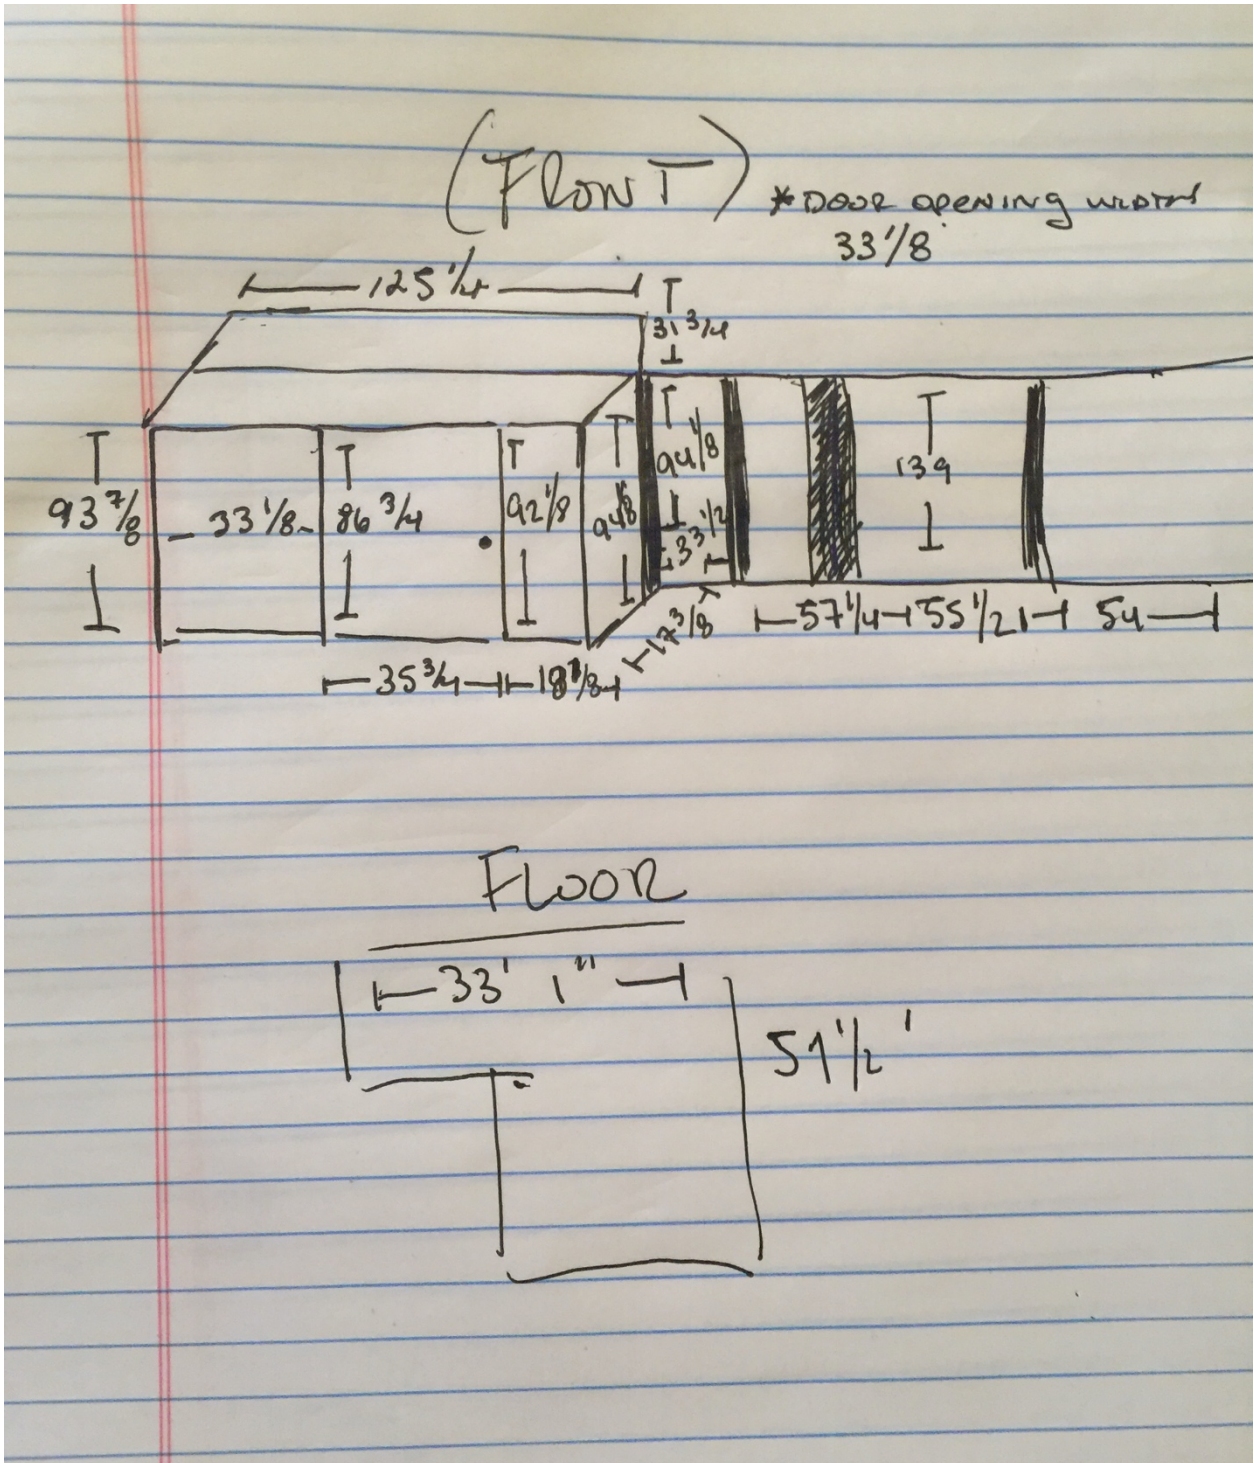 (FRONT)
*DOOR OPENING WIDTH
33 1/8
125 1/4
31 3/4
93 7/8
33 1/8
86 3/4
92 1/8
94 1/8
94 1/8
33 1/2
139
17 3/8
57 1/4
55 1/2
54
35 3/4
FLOOR
33' 1"
51 1/2'